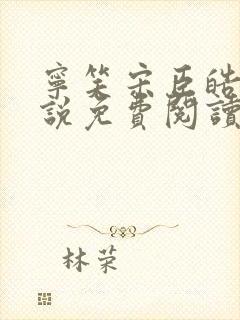 寧笑宋臣皓
說免費閱讀
林荣